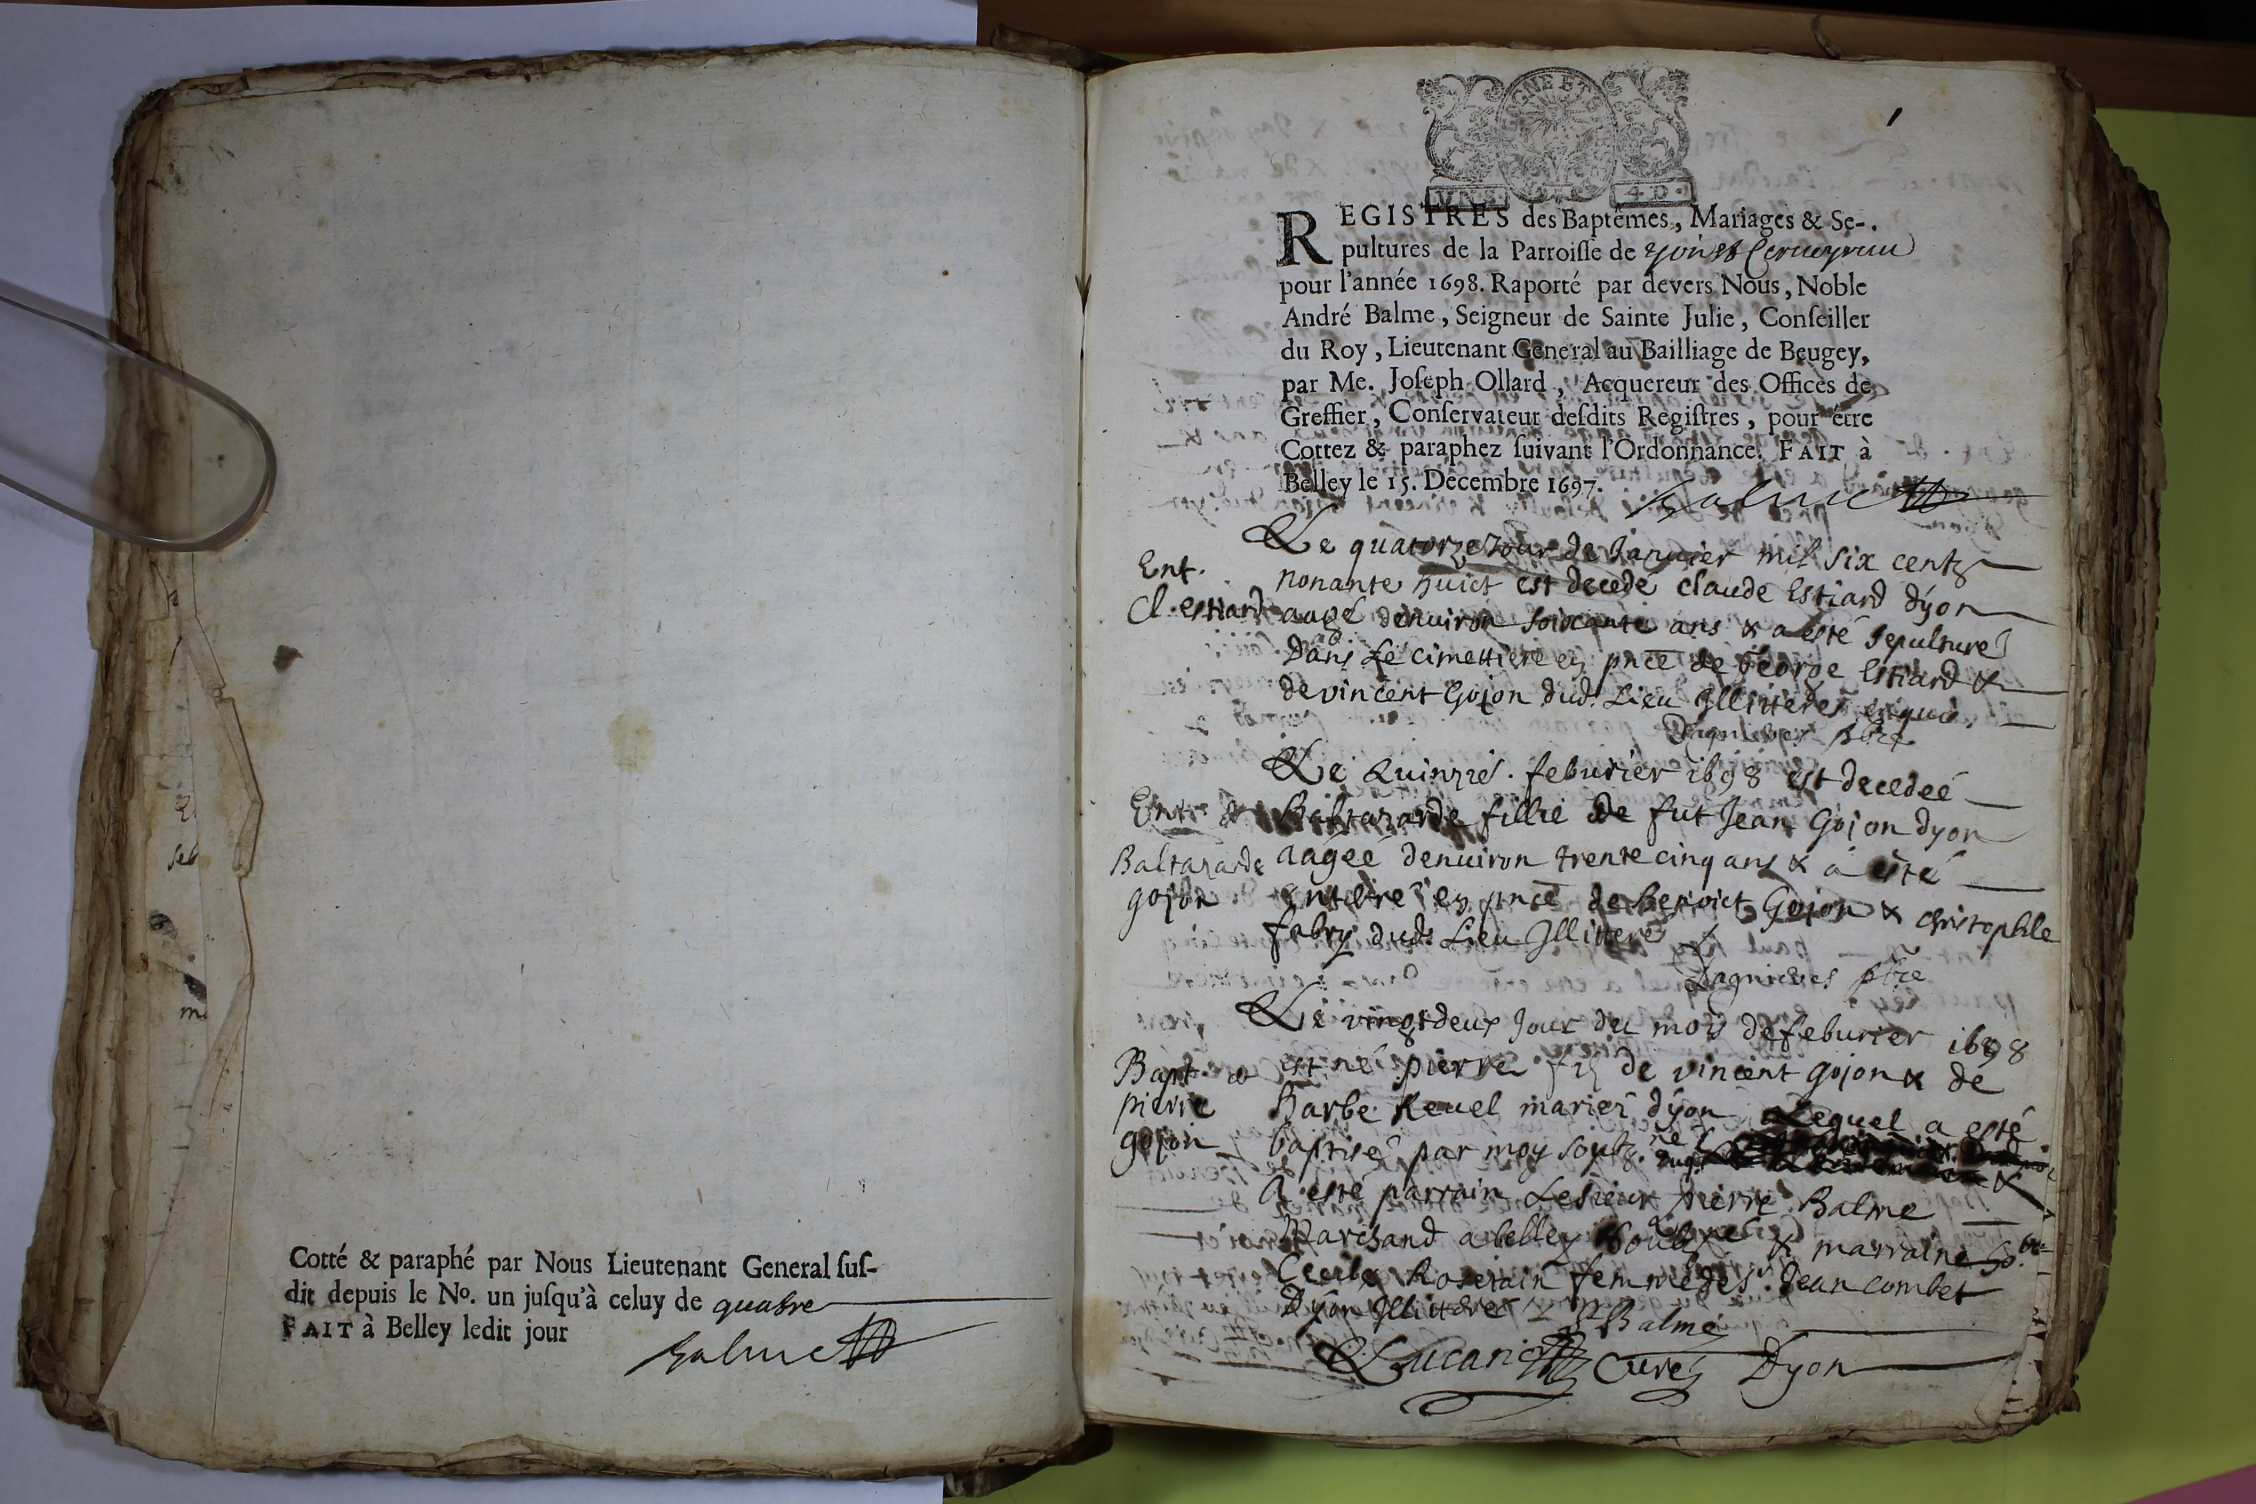 Cotté & paraphé par Nous Lieutenant General suſ-
dit depuis le No. un juſqu'à celuy de quatre
FAIT à Belley ledit jour
Balme
1
GNE ET
4 D.
REGISTRES des Baptêmes, Mariages & Se-
pultures de la Parroiſſe de yon &
pour l'année 1698. Raporté par devers Nous, Noble
André Balme, Seigneur de Sainte Julie, Conſeiller
du Roy, Lieutenant General au Bailliage de Beugey,
par Me. Joſeph Ollard, Acquereur des Offices de
Greffier, Conſervateur deſdits Regiſtres, pour étre
Cottez & paraphez ſuivant l'Ordonnance. FAIT à
Belley le 15. Decembre 1697.
Balme
Ent.
Cl. estiard
Le quatorze Jour de Januier mil six centz
nonante huict est decede claude Estiard dyon
aagé denuiron soixante ans & a esté sepulturé
Dans Le cimettiere en pnce de George Estiard &
de vincent Gojon dud. Lieu Jllitteres enquis
ptre
Ent. de
Baltazarde
gojon
Le Quinzie. feburier 1698 est decedeé
Baltazarde fillie de fut Jean Gojon dyon
aageé denuiron trente cinq ans & a esté
enterreé en pnce de benoict Gojon & christophle
fabry dud. Lieu Jllitteres
Dagnieres ptre
Bapt. de
pierre
gojon
Le vingtdeux Jour du mois de feburier 1698
est né pierre fis de vincent gojon & de
Barbe Reuel mariez dyon Lequel a esté
baptisé par moy soubz.né
A esté parrain Le sieur pierre Balme
Marchand a belley & marraine
Cecile femme de sr. Jean combet
Dyon Jllitteree Pr Balme
Lucan Curé Dyon